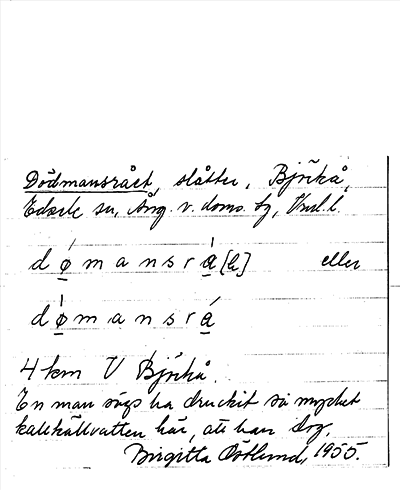 Dödmansrået, slåtter, Björkå,
Edsele sn, Ång. v. doms. fg, Vnl. l.
dǿ̣mansrạ́[h] eller
dǿ̣mansrạ́
4 km V Björkå.
En man sägs ha druckit så mycket
kallkällvatten här, att han dog.
Birgitta Östlund, 1955.